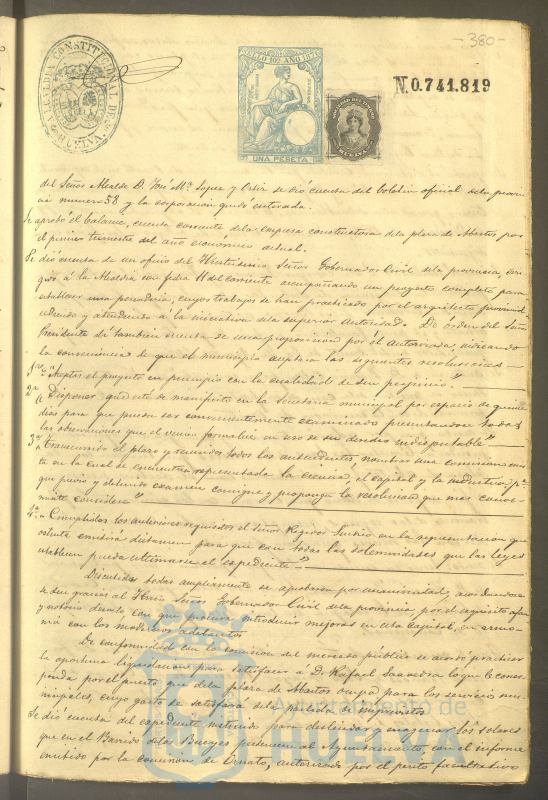 -380-
ALCALDIA CONSTITUCIONAL DE HUELVA
SELLO 10º AÑO 187
UNA PESETA
N.0.741.819
del Señor Alcalde D. José Mª Lopez y Ortiz se dió cuenta del Boletin oficial de la provin
cia numero 58 y la corporacion quedó enterada.
Se aprobó el balance, cuenta corriente de la empresa constructora de la plaza de Abastos por
el primer trimestre del año economico actual.
Se dió cuenta de un oficio del Ilustrisimo Señor Gobernador Civil de la provincia, diri
gido á la Alcaldia con fecha 11 del corriente acompañando un proyecto completo para
establecer una penaderia, cuyos trabajos se han practicado por el arquitecto provincial
y atendiendo á la iniciativa de la superior autoridad. De órden del Señor
Presidente dí tambien cuenta de una proposicion por él autorizada, indicando
la conveniencia de que el municipio aceptara las siguientes resoluciones
1ª Aceptar el proyecto en principio con la
2ª Disponer quede de manifiesto en la Secretaria municipal por espacio de quince
dias para que pueda ser convenientemente examinado presentandose todas
las observaciones que el vecino formalice en uso de su derecho indisputable"
3ª Transcurrido el plazo y reunidos todos los antecedentes, nombrar una comision mis
ta en la cual se encuentre representada la ciencia, el capital y la industria pª
que previo y detenido examen consigne y proponga la resolucion que mas conve-
niente considere"
4ª Cumplidos los anteriores requisitos el Señor Regidor Sindico en la representacion que
ostenta emitirá dictamen para que con todas las solemnidades que las leyes
establecen pueda ultimarse el expediente"
Discutidas todas ampliamente se aprobaron por unanimidad, acordandose
se den gracias al Ilmo Señor Gobernador Civil de la provincia por el esquisito afan
y notorio desvelo con que procura introducir mejoras en esta Capital, en armo-
nia con los modernos adelantos
De conformidad con la comision del mercado público se acordó practicar
la oportuna liquidacion para satisfacer á D. Rafael Saavedra lo que le corres-
ponda por el puesto que de la plaza de Abastos ocupa para los servicios mu-
nicipales, cuyo gasto se satisfará de la partida de imprevistos
Se dió cuenta del expediente instruido para deslindar y enajenar los solares
que en el Barrio de los Bueyes pertenecen al Ayuntamiento, con el informe
emitido por la comision de Ornato, autorizado por el perito facultativo
Ayuntamiento de
HUELVA